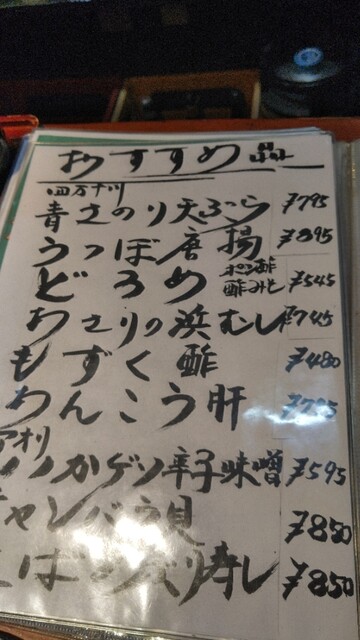 おすすめ品
四万十川
青さのり天ぷら ¥795
うつぼ唐揚 ¥895
どろめ ポン酢 酢みそ ¥545
あさりの浜むし ¥745
もずく酢 ¥480
あんこう肝
アオリ
イカゲソ辛子味噌 ¥595
チャンバラ貝 ¥850
さばの 寿し ¥850